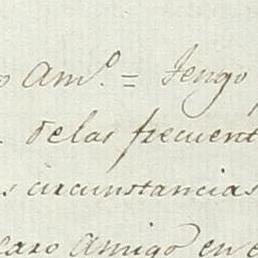 o Am.º = Tengo
. delas frecuent
s circunstancias
caro Amigo en e